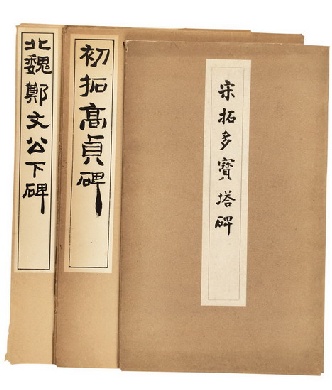 北魏鄭文公下碑
初拓高貞碑
宋拓多寶塔碑